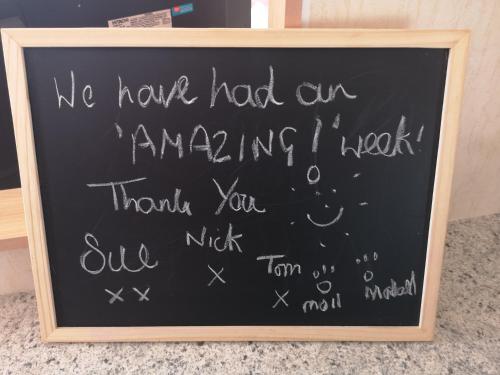 We have had an
'AMAZING!' week!
Thank You
Sue Nick Tom
xx x x moll